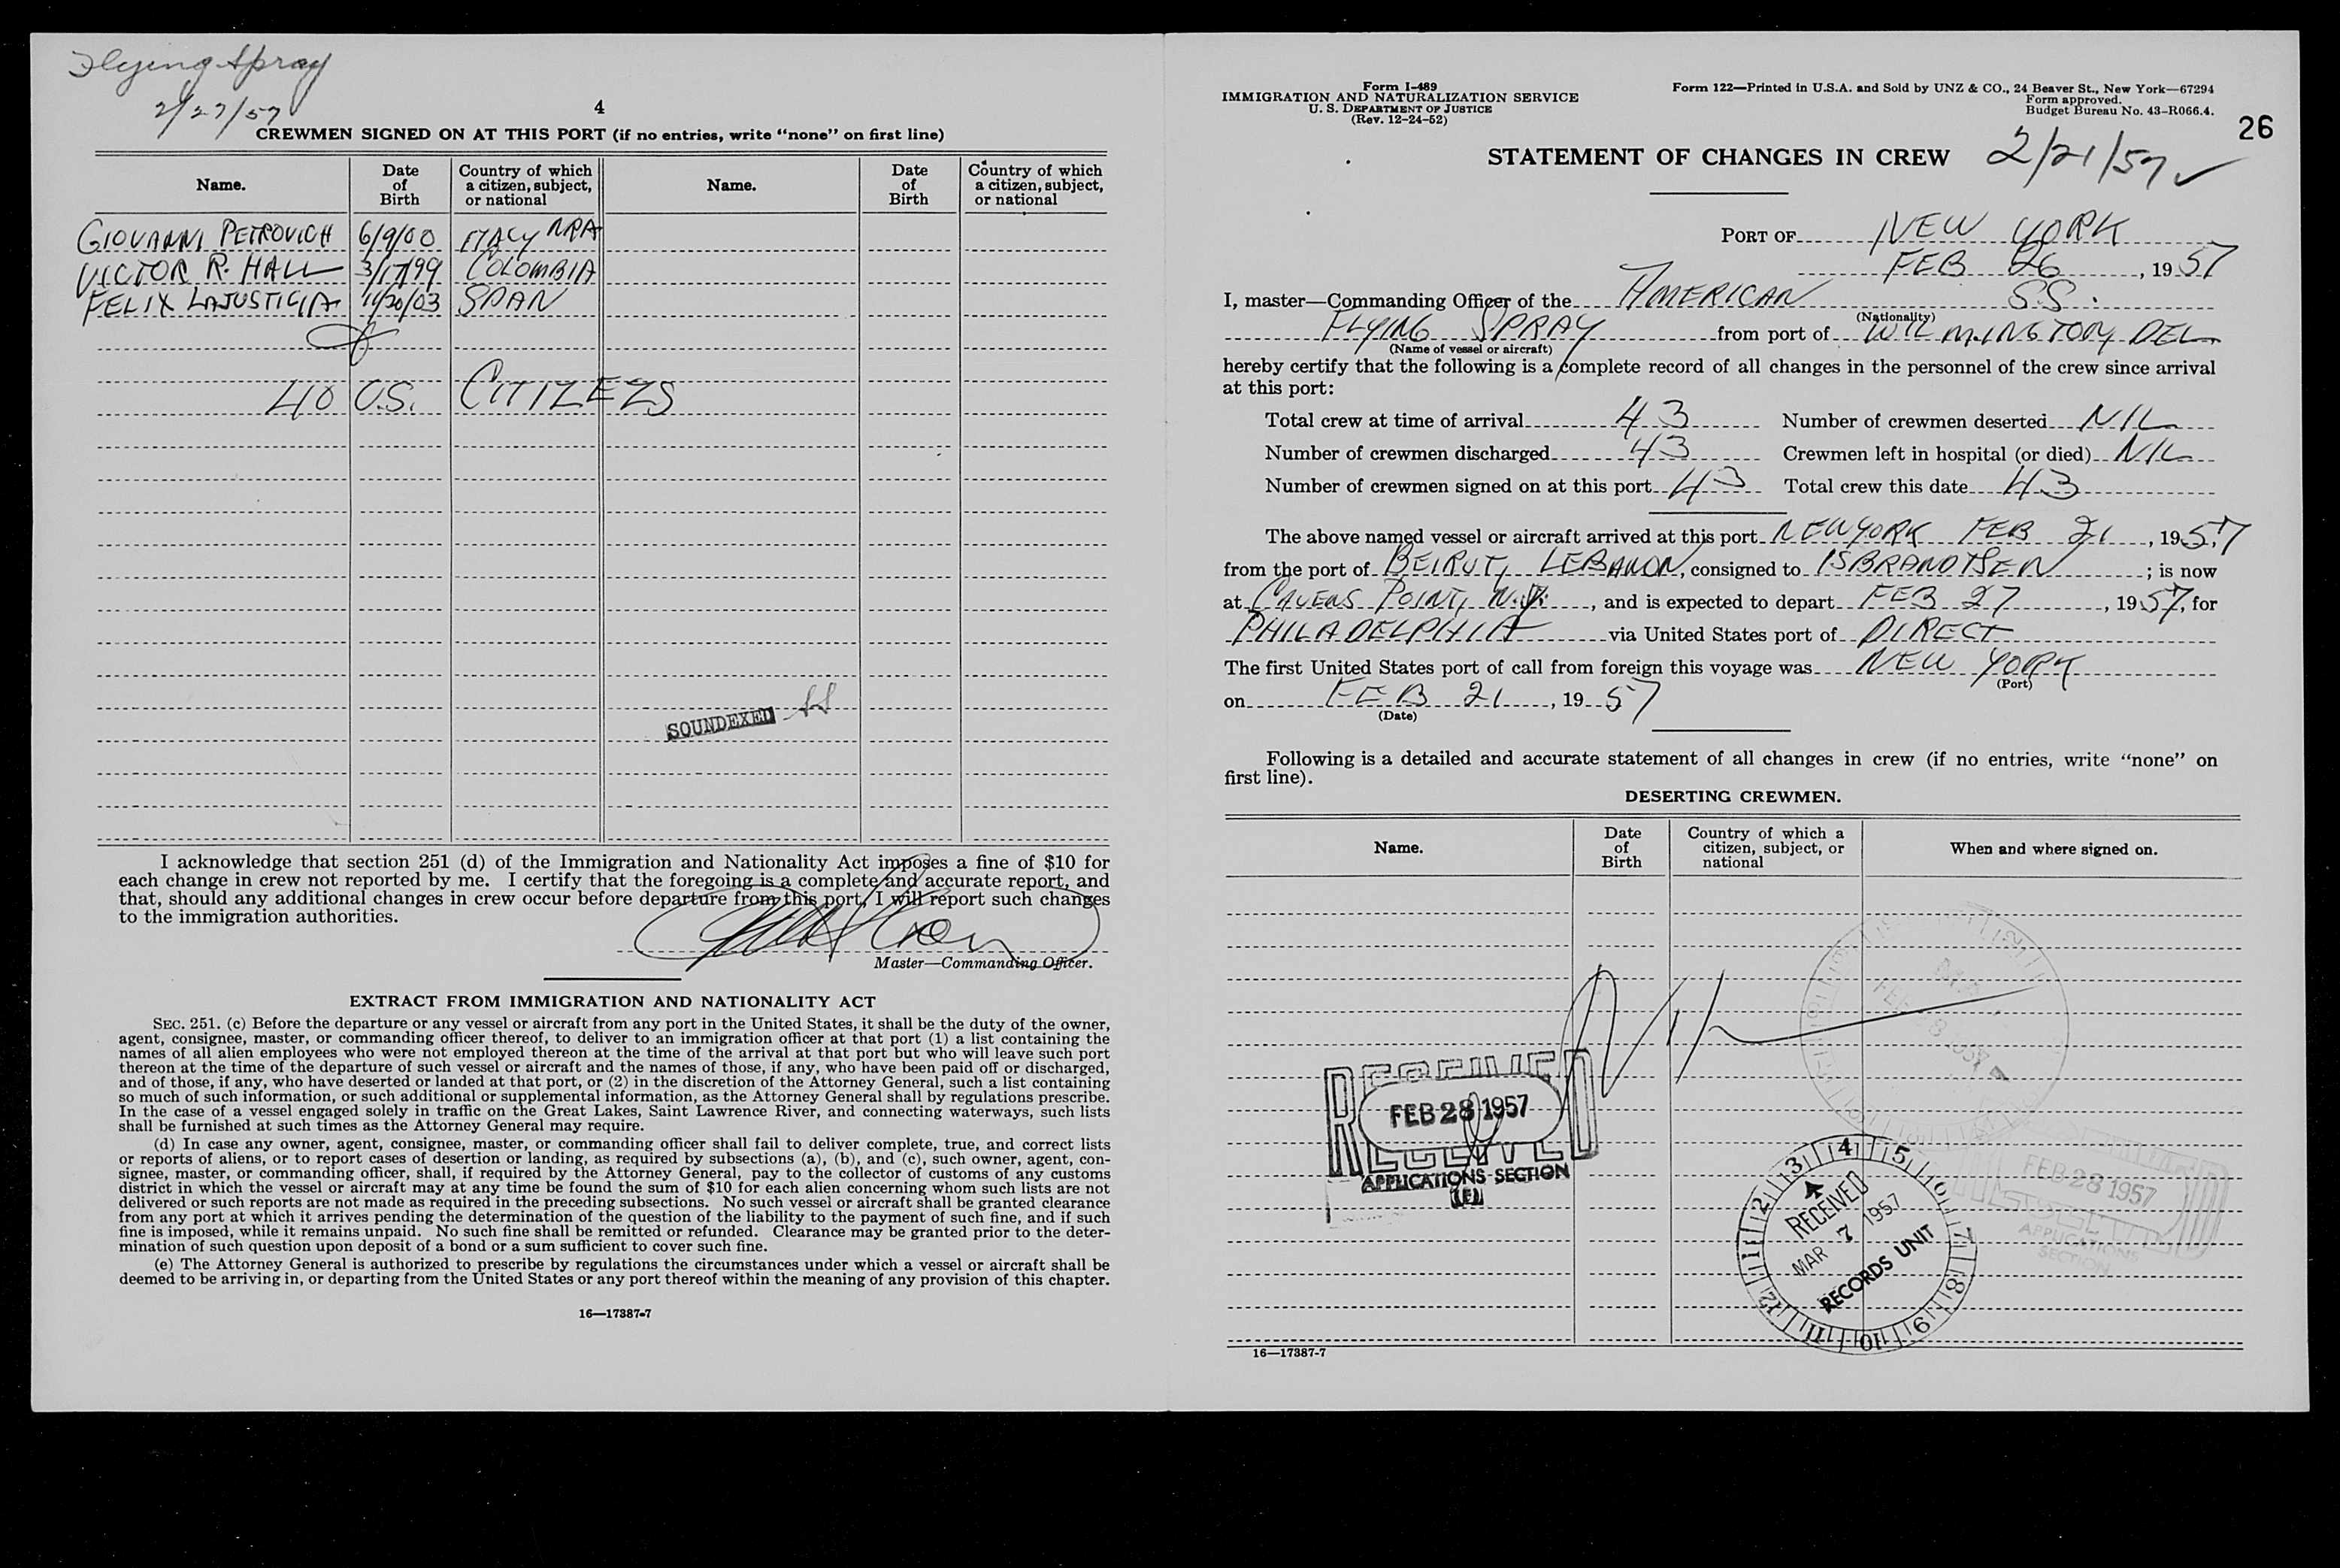 Flying Spray
2/27/57
4
CREWMEN SIGNED ON AT THIS PORT (if no entries, write "none" on first line)
Name. Date of Birth Country of which a citizen, subject, or national Name. Date of Birth Country of which a citizen, subject, or national
GIOVANNI PETROVICH 6/9/00 ITALY NRA
VICTOR R. HALL 3/17/99 COLOMBIA
FELIX LAJUSTICIA 11/20/03 SPAN
40 U.S. CITIZENS
SOUNDEXED
I acknowledge that section 251 (d) of the Immigration and Nationality Act imposes a fine of $10 for
each change in crew not reported by me. I certify that the foregoing is a complete and accurate report, and
that, should any additional changes in crew occur before departure from this port, I will report such changes
to the immigration authorities.
Master—Commanding Officer.
EXTRACT FROM IMMIGRATION AND NATIONALITY ACT
SEC. 251. (c) Before the departure or any vessel or aircraft from any port in the United States, it shall be the duty of the owner,
agent, consignee, master, or commanding officer thereof, to deliver to an immigration officer at that port (1) a list containing the
names of all alien employees who were not employed thereon at the time of the arrival at that port but who will leave such port
thereon at the time of the departure of such vessel or aircraft and the names of those, if any, who have been paid off or discharged,
and of those, if any, who have deserted or landed at that port, or (2) in the discretion of the Attorney General, such a list containing
so much of such information, or such additional or supplemental information, as the Attorney General shall by regulations prescribe.
In the case of a vessel engaged solely in traffic on the Great Lakes, Saint Lawrence River, and connecting waterways, such lists
shall be furnished at such times as the Attorney General may require.
(d) In case any owner, agent, consignee, master, or commanding officer shall fail to deliver complete, true, and correct lists
or reports of aliens, or to report cases of desertion or landing, as required by subsections (a), (b), and (c), such owner, agent, con-
signee, master, or commanding officer, shall, if required by the Attorney General, pay to the collector of customs of any customs
district in which the vessel or aircraft may at any time be found the sum of $10 for each alien concerning whom such lists are not
delivered or such reports are not made as required in the preceding subsections. No such vessel or aircraft shall be granted clearance
from any port at which it arrives pending the determination of the question of the liability to the payment of such fine, and if such
fine is imposed, while it remains unpaid. No such fine shall be remitted or refunded. Clearance may be granted prior to the deter-
mination of such question upon deposit of a bond or a sum sufficient to cover such fine.
(e) The Attorney General is authorized to prescribe by regulations the circumstances under which a vessel or aircraft shall be
deemed to be arriving in, or departing from the United States or any port thereof within the meaning of any provision of this chapter.
16—17387-7
Form I-489
IMMIGRATION AND NATURALIZATION SERVICE
U. S. DEPARTMENT OF JUSTICE
(Rev. 12-24-52)
Form 122—Printed in U.S.A. and Sold by UNZ & CO., 24 Beaver St., New York—67294
Form approved.
Budget Bureau No. 43-R066.4.
26
STATEMENT OF CHANGES IN CREW 2/21/57
PORT OF NEW YORK
FEB 26, 1957
I, master—Commanding Officer of the AMERICAN SS.
(Nationality)
FLYING SPRAY from port of WILMINGTON, DEL
(Name of vessel or aircraft)
hereby certify that the following is a complete record of all changes in the personnel of the crew since arrival
at this port:
Total crew at time of arrival 43 Number of crewmen deserted NIL
Number of crewmen discharged 43 Crewmen left in hospital (or died) NIL
Number of crewmen signed on at this port 43 Total crew this date 43
The above named vessel or aircraft arrived at this port NEW YORK FEB 21, 1957
from the port of BEIRUT, LEBANON, consigned to ISBRANDTSEN; is now
at CAVENS POINT, N.J., and is expected to depart FEB 27, 1957, for
PHILADELPHIA via United States port of DIRECT
The first United States port of call from foreign this voyage was NEW YORK
(Port)
on FEB 21, 1957
(Date)
Following is a detailed and accurate statement of all changes in crew (if no entries, write "none" on
first line).
DESERTING CREWMEN.
Name. Date of Birth Country of which a citizen, subject, or national When and where signed on.
Nil
RECEIVED
FEB 28 1957
RECEIVED
APPLICATIONS-SECTION
FEB 28 1957
APPLICATIONS
SECTION
1 2 3 4 5 6 7 8 9 10 11 12
RECEIVED
MAR 7 1957
RECORDS UNIT
16—17387-7